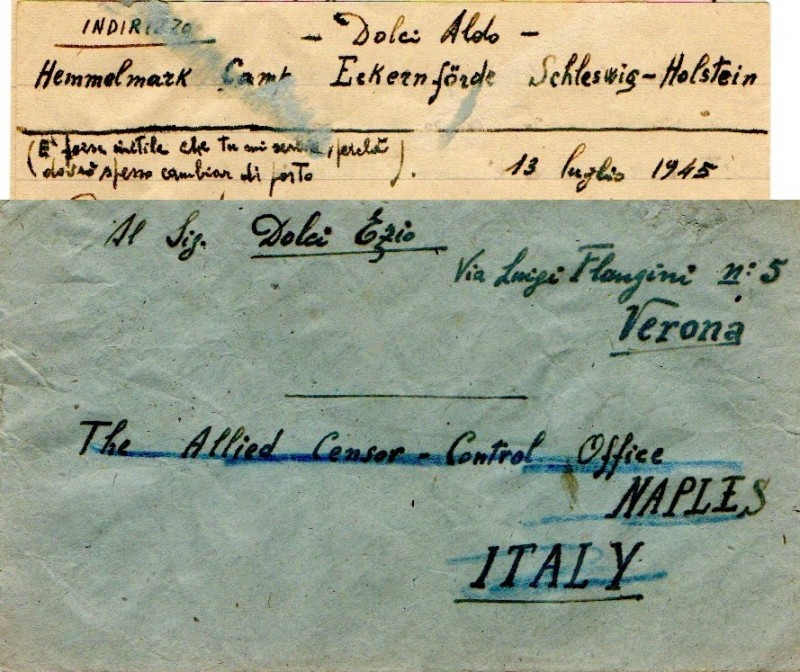 INDIRIZZO
- Dolci Aldo -
Hemmelmark Camp Eckernförde Schleswig-Holstein
(E' forse inutile che tu mi scriva, perchè
dovrò spesso cambiar di posto).
13 luglio 1945
Al Sig. Dolci Ezio
Via Luigi Flangini n: 5
Verona
The Allied Censor - Control Office
NAPLES
ITALY